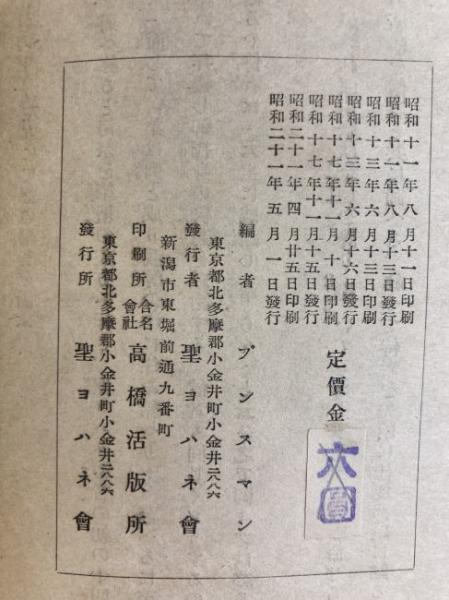 昭和十一年八月十一日印刷
昭和十一年八月十三日發行
昭和十三年六月十三日印刷
昭和十三年六月十六日發行
昭和十七年十一月十日印刷
昭和十七年十一月十五日發行
昭和二十一年四月廿五日印刷
昭和二十一年五月一日發行
定價金
六
編者 プンスマン
東京都北多摩郡小金井町小金井二八八六
發行者 聖ヨハネ會
新潟市東堀前通九番町
印刷所 合名會社 高橋活版所
東京都北多摩郡小金井町小金井二八八六
發行所 聖ヨハネ會